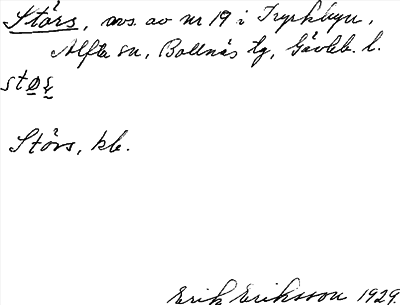 Störs, avs. av nr 19 i Kyrkbyn,
Alfta sn, Bollnäs tg, Gävleb. l.
Störs, kb.
Erik Eriksson 1929.